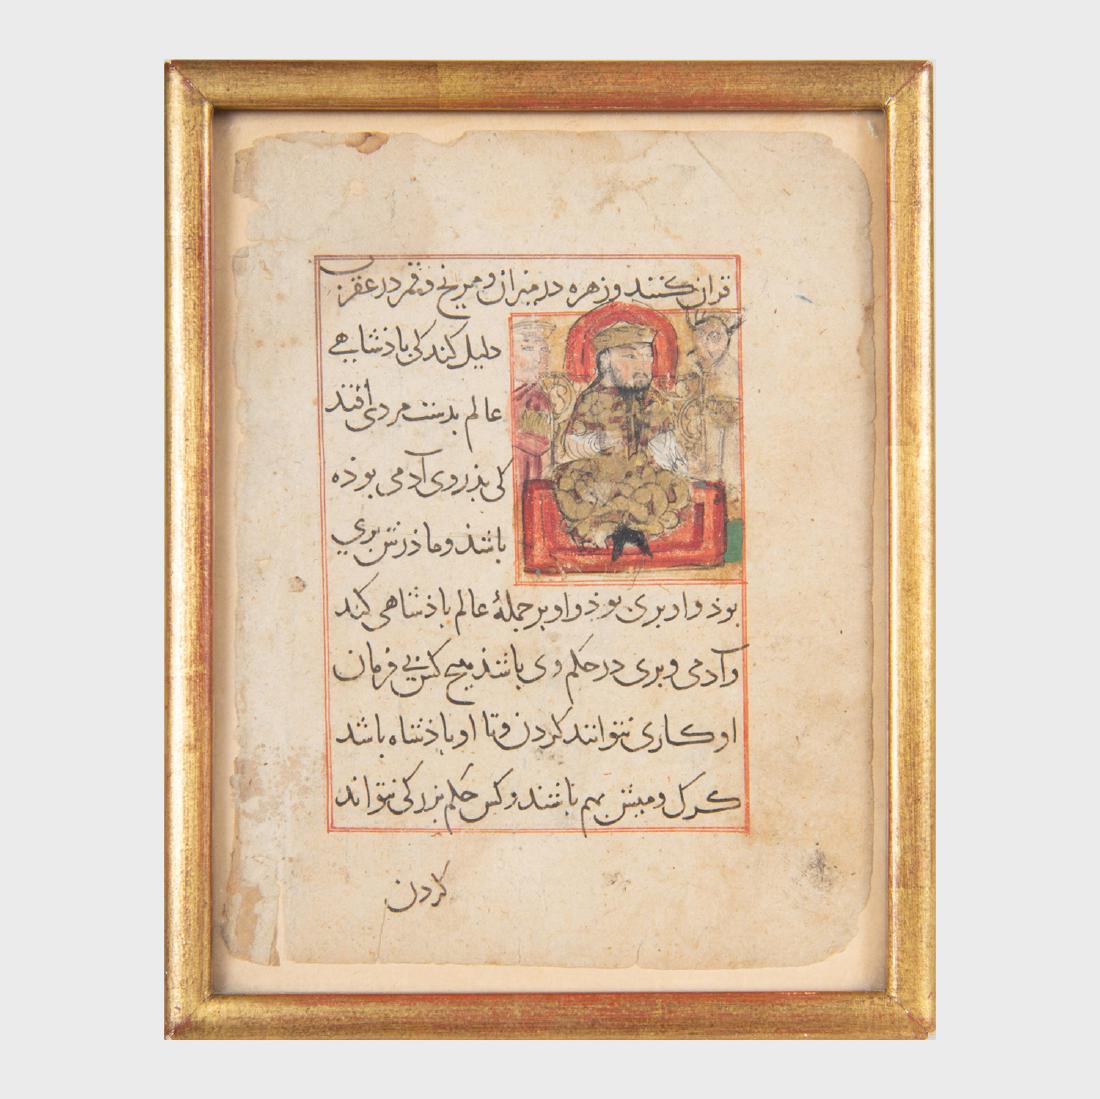 قران کنند و زهره در میزان و مریخ و قمر در عقرب
دلیل کند کی باذشاهی
عالم بدست مردی افتد
کی بذر وی آدمی بوذه
باشذ و ماذرش بری
بوذ و او بری بوذ و او بر جملهٔ عالم باذشاهی کند
و آدمی و بری در حکم وی باشند هیچ کس بی فرمان
او کاری نتوانند کردن و تا او باذشاه باشد
کرک و میش بهم باشند و کس حکم بزرکی نتواند
کردن